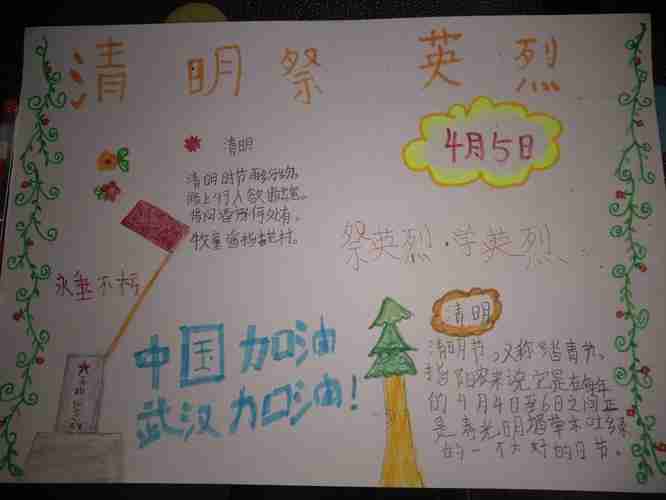 清明祭 英烈
清明
清明时节雨纷纷,
路上行人欲断魂。
借问酒家何处有,
牧童遥指杏花村。
4月5日
祭英烈·学英烈
永垂不朽
中国加油
武汉加油!
清明
清明节,又称踏青节,
按阳历来说,它是在每年
的4月4日至6日之间,正
是春光明媚草木吐绿
的一个大好的日节。